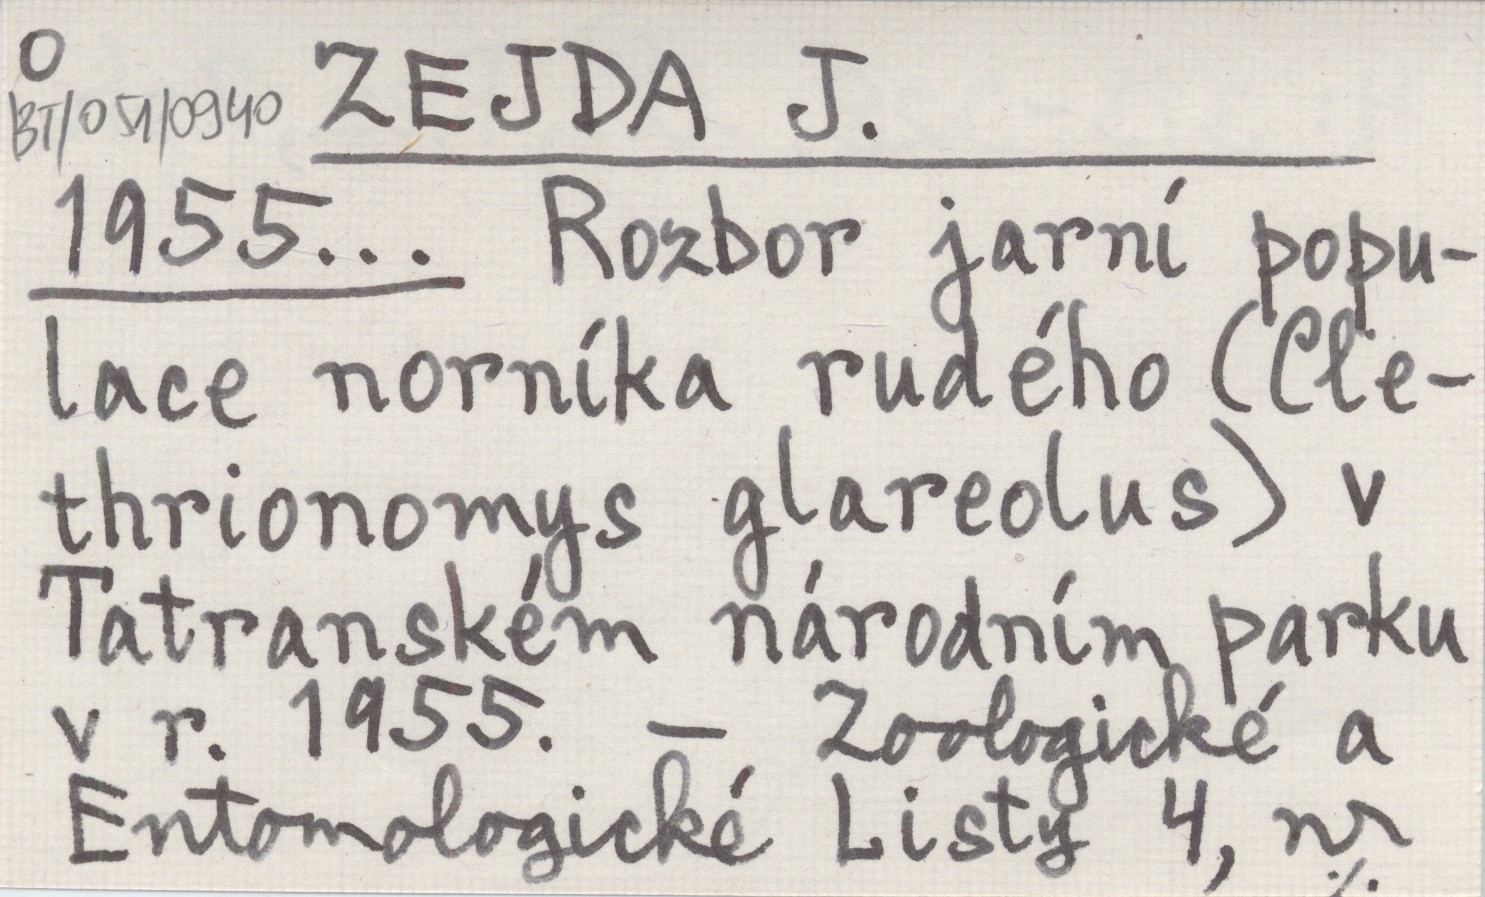 O
BT/051/0940 ZEJDA J.
1955... Rozbor jarní popu-
lace norníka rudého (Cle-
thrionomys glareolus) v
Tatranském národním parku
v r. 1955. — Zoologické a
Entomologické Listy 4, nr
./.